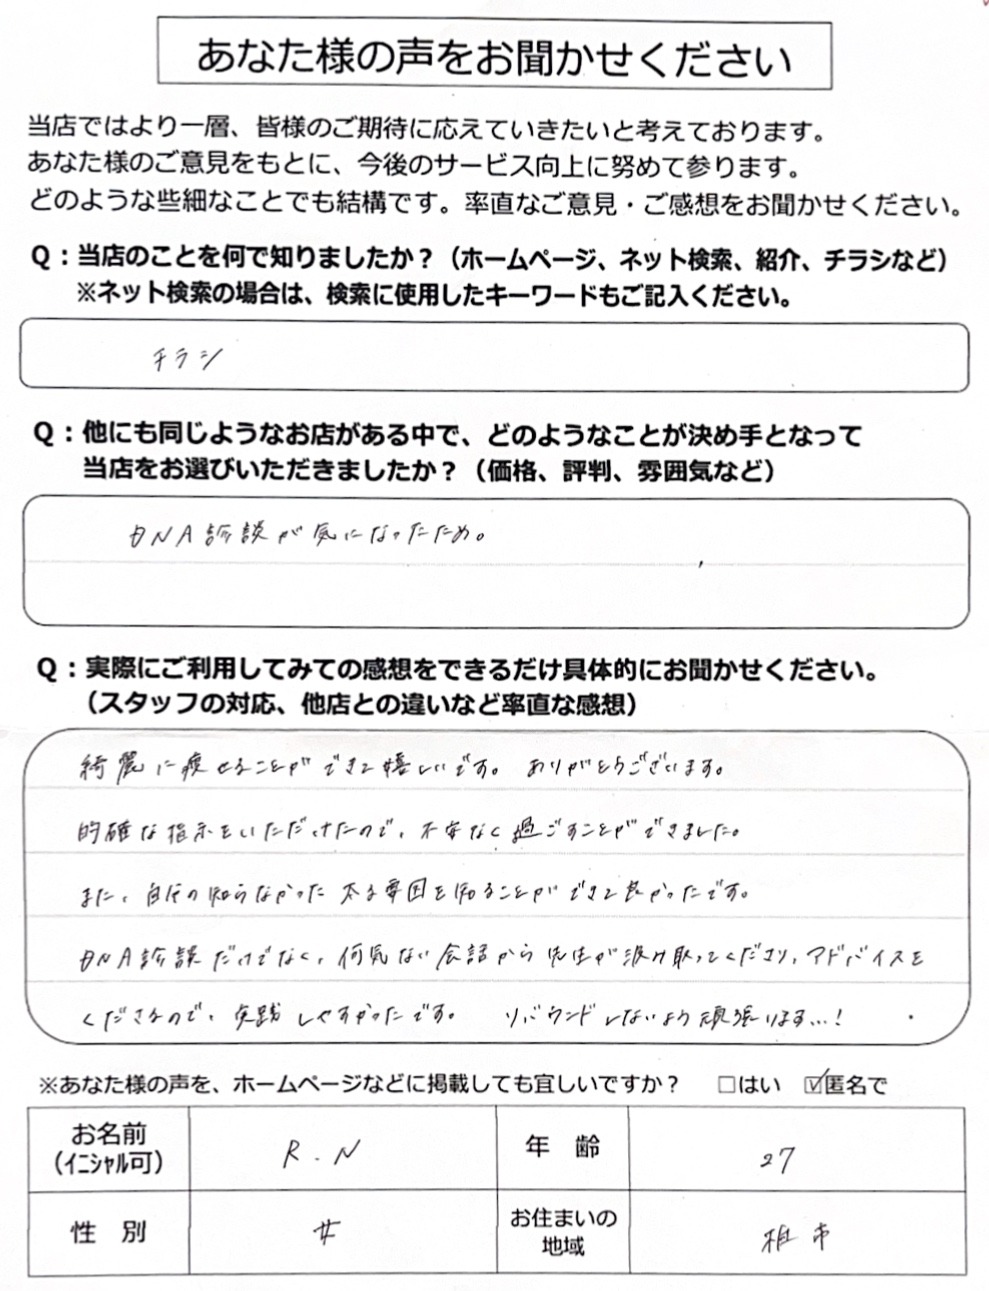 あなた様の声をお聞かせください
当店ではより一層、皆様のご期待に応えていきたいと考えております。
あなた様のご意見をもとに、今後のサービス向上に努めて参ります。
どのような些細なことでも結構です。率直なご意見・ご感想をお聞かせください。
Q：当店のことを何で知りましたか？（ホームページ、ネット検索、紹介、チラシなど）
※ネット検索の場合は、検索に使用したキーワードもご記入ください。
チラシ
Q：他にも同じようなお店がある中で、どのようなことが決め手となって
当店をお選びいただきましたか？（価格、評判、雰囲気など）
DNA診談が気になったため。
Q：実際にご利用してみての感想をできるだけ具体的にお聞かせください。
（スタッフの対応、他店との違いなど率直な感想）
綺麗に痩せることができて嬉しいです。ありがとうございます。
的確な指示をいただけたので、不安なく過ごすことができました。
また、自分の知らなかった太る要因を知ることができて良かったです。
DNA診談だけでなく、何気ない会話から先生が汲み取ってくださり、アドバイスを
くださるので、実践しやすかったです。リバウンドしないよう頑張ります…！
※あなた様の声を、ホームページなどに掲載しても宜しいですか？ □はい ☑匿名で
お名前
（イニシャル可） R.N 年 齢 27
性 別 女 お住まいの
地域 市